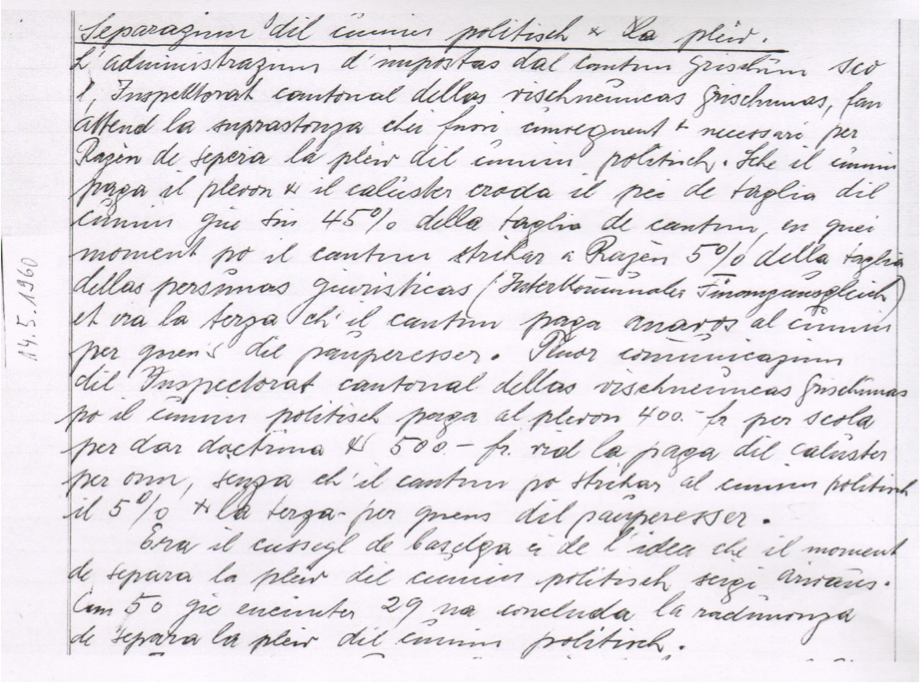 Separaziun dil cumin politisch & la pleiv.
L'administraziun d'impostas dal cantun Grischun sco
l'Inspektorat cantonal dellas vischneuncas grischunas, fan
attend la suprastonza chei fussi consequent & necessari per
Razén de separa la pleiv dil cumin politisch. Sche il cumin
paga il plevon & il caluster croda il pei de taglia dil
cumin gie sin 45% della taglia de cantun, en quei
moment po il cantun strihar a Razén 5% della taglia
dellas persunas giuristicas (Interkommunaler Finanzausgleich)
et era la terza ch'il cantun paga anavos al cumin
per quens dil pauperesser. Tenor comunicaziun
dil Inspectorat cantonal dellas vischneuncas grischunas
po il cumin politisch paga al plevon 400.- fr per scola
per dar doctrina & 500.- fr. vid la paga dil caluster
per onn, senza ch'il cantun po strihar al cumin politisch
il 5% & la terza per quens dil pauperesser.
Era il cussegl de baselgia ei de l'idea che il moment
de separa la pleiv dil cumin politisch seigi arrivaus.
Cun 50 gie encunter 29 na concluda la radunonza
de separa la pleiv dil cumin politisch.
14.5.1960